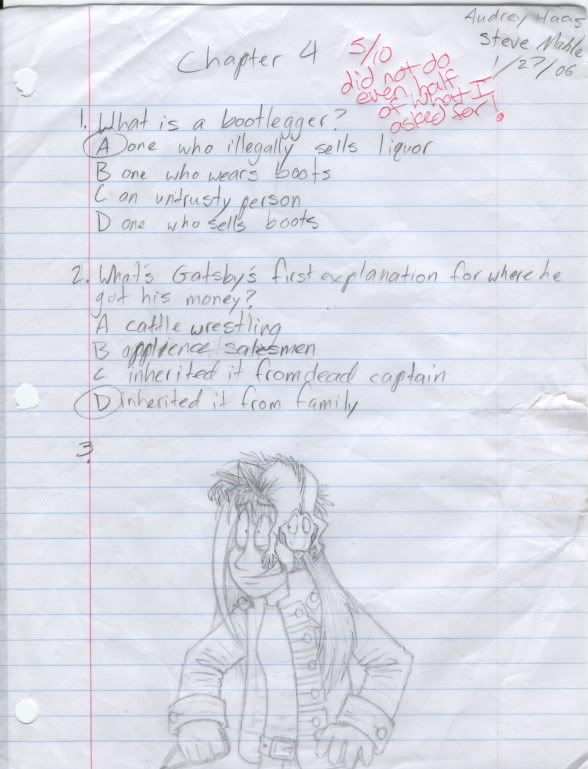 Audrey Haas
Steve Mahle
1/27/06
Chapter 4
5/10
did not do
even half
of what I
asked for!
1. What is a bootlegger?
A one who illegally sells liquor
B one who wears boots
C an untrusty person
D one who sells boots
2. What's Gatsby's first explanation for where he
got his money?
A cattle wrestling
B applience salesmen
C inherited it from dead captain
D inherited it from family
3.